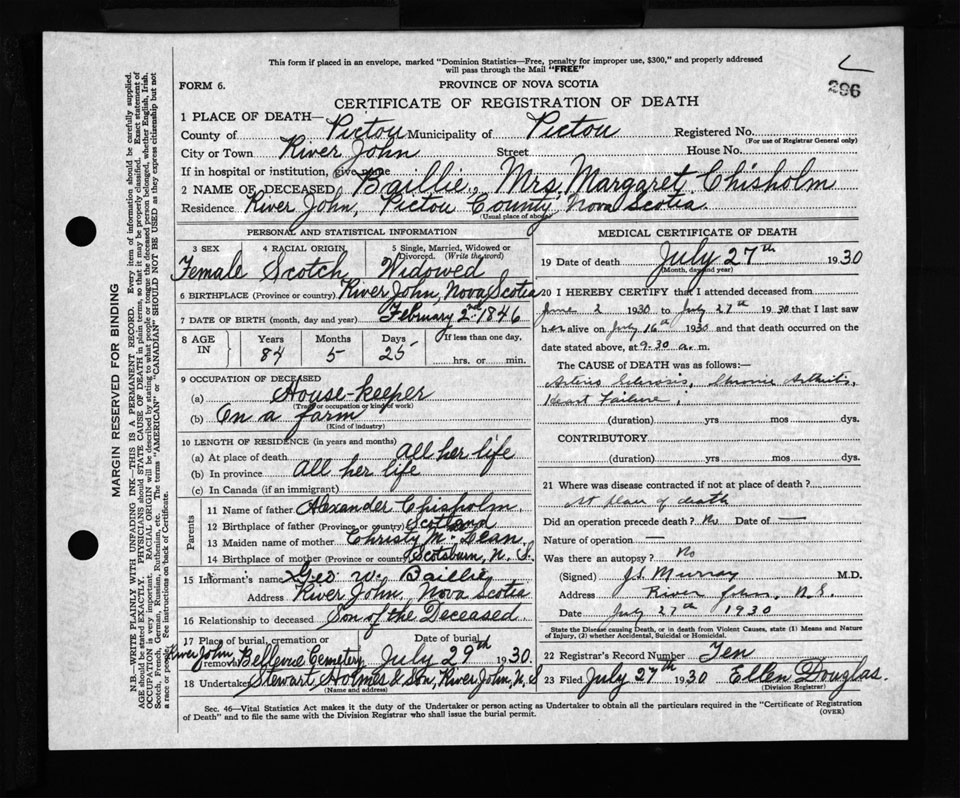 This form if placed in an envelope, marked "Dominion Statistics—Free, penalty for improper use, $300," and properly addressed
will pass through the Mail "FREE"
296
FORM 6.
PROVINCE OF NOVA SCOTIA
CERTIFICATE OF REGISTRATION OF DEATH
1 PLACE OF DEATH—
County of Pictou Municipality of Pictou Registered No.
(For use of Registrar General only)
City or Town River John Street House No.
If in hospital or institution, give name
2 NAME OF DECEASED Baillie, Mrs. Margaret Chisholm
Residence River John, Pictou County, Nova Scotia
(Usual place of abode)
PERSONAL AND STATISTICAL INFORMATION
3 SEX 4 RACIAL ORIGIN 5 Single, Married, Widowed or Divorced. (Write the word)
Female Scotch Widowed
6 BIRTHPLACE (Province or country) River John, Nova Scotia
7 DATE OF BIRTH (month, day and year) February 2nd 1846
8 AGE IN Years Months Days If less than one day,
84 5 25 hrs. or min.
9 OCCUPATION OF DECEASED
(a) House-keeper
(Trade or occupation or kind of work)
(b) On a farm
(Kind of industry)
10 LENGTH OF RESIDENCE (in years and months)
(a) At place of death all her life
(b) In province all her life
(c) In Canada (if an immigrant)
Parents
11 Name of father Alexander Chisholm
12 Birthplace of father (Province or country) Scotland
13 Maiden name of mother Christy McLean
14 Birthplace of mother (Province or country) Scotsburn, N. S.
15 Informant's name Geo W. Baillie
Address River John, Nova Scotia
16 Relationship to deceased Son of the Deceased
17 Place of burial, cremation or removal Date of burial
River John, Bellevue Cemetery July 29th 1930.
18 Undertaker Stewart Holmes & Son, River John, N. S
(Name and address)
MEDICAL CERTIFICATE OF DEATH
19 Date of death July 27th 1930
(Month, day and year)
20 I HEREBY CERTIFY that I attended deceased from
June 2 1930 to July 27th 1930 that I last saw
her alive on July 16th 1930 and that death occurred on
date stated above, at 9-30 a. m.
The CAUSE OF DEATH was as follows:—
Arterio Sclerosis, Chronic Arthritis,
Heart Failure;
(duration) yrs mos dys.
CONTRIBUTORY
(duration) yrs mos dys.
21 Where was disease contracted if not at place of death?
At place of death
Did an operation precede death? No Date of —
Nature of operation —
Was there an autopsy? No
(Signed) J.S. Murray M.D.
Address River John, N.S.
Date July 27th 1930
State the Disease causing Death, or in death from Violent Causes, state (1) Means and Nature
of Injury, (2) whether Accidental, Suicidal or Homicidal.
22 Registrar's Record Number Ten
23 Filed July 27th 1930 Ellen Douglas.
(Division Registrar)
Sec. 46—Vital Statistics Act makes it the duty of the Undertaker or person acting as Undertaker to obtain all the particulars required in the "Certificate of Registration
of Death" and to file the same with the Division Registrar who shall issue the burial permit.
(OVER)
MARGIN RESERVED FOR BINDING
N.B.—WRITE PLAINLY WITH UNFADING INK—THIS IS A PERMANENT RECORD. Every item of information should be carefully supplied.
AGE should be stated EXACTLY. PHYSICIANS should STATE CAUSE OF DEATH in plain terms, so that it may be properly classified. Exact statement of
OCCUPATION is very important. RACIAL ORIGIN will be described by stating to what people or tongue the deceased person belonged, whether English, Irish,
Scotch, French, German, Russian, Ruthenian, etc. The terms "AMERICAN" or "CANADIAN" SHOULD NOT BE USED as they express citizenship but not
a race or people. See instructions on back of Certificate.